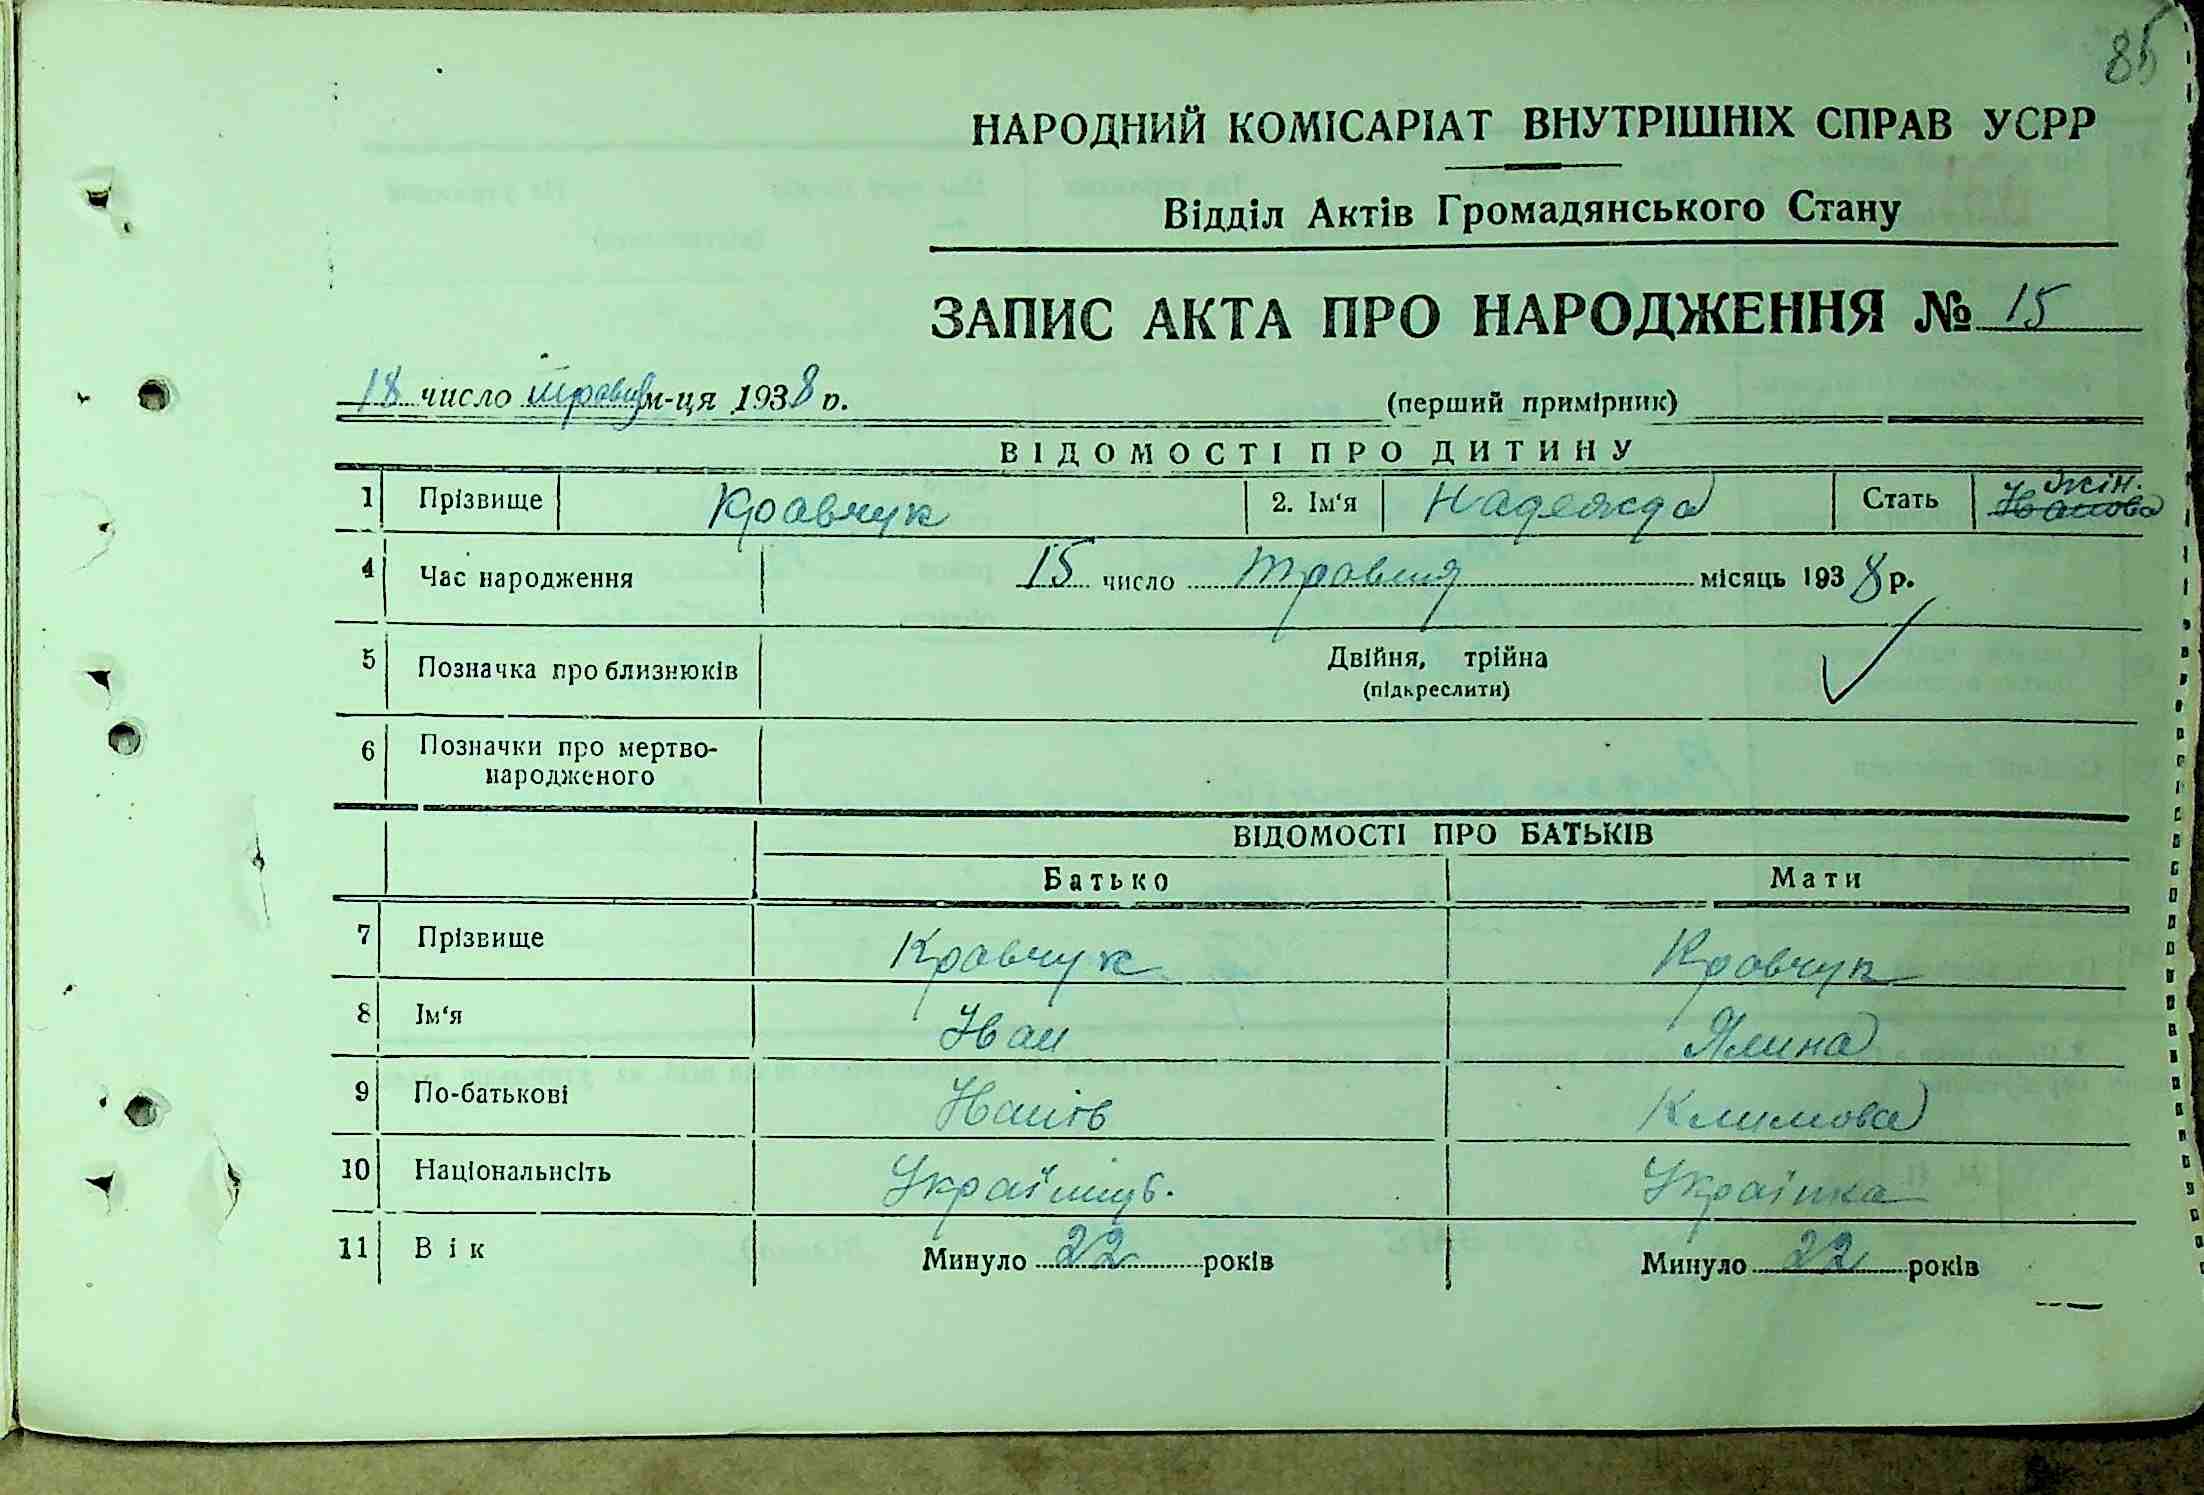 85
НАРОДНИЙ КОМІСАРІАТ ВНУТРІШНІХ СПРАВ УСРР
Відділ Актів Громадянського Стану
ЗАПИС АКТА ПРО НАРОДЖЕННЯ № 15
18 число травня м-ця 1938 р.
(перший примірник)
ВІДОМОСТІ ПРО ДИТИНУ
1 Прізвище Кравчук 2. Ім'я Надежда Стать жін.
4 Час народження 15 число травня місяць 1938 р.
5 Позначка про близнюків Двійня, трійна
(підкреслити)
6 Позначки про мертво-
народженого
ВІДОМОСТІ ПРО БАТЬКІВ
Батько Мати
7 Прізвище Кравчук Кравчук
8 Ім'я Іван Ялина
9 По-батькові Климова
10 Національність Українць. Українка
11 Вік Минуло 22 років Минуло 22 років